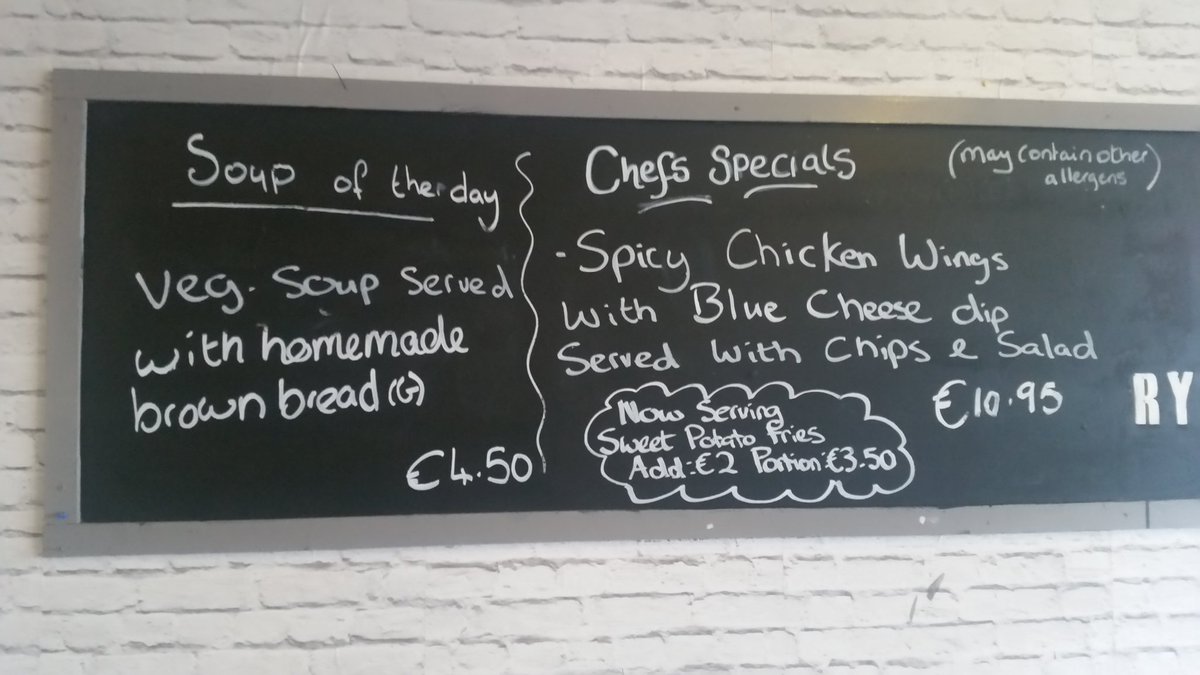 Soup of the day
Veg. Soup Served
with homemade
brown bread (G)
€4.50
Chefs Specials
(may contain other
allergens)
- Spicy Chicken Wings
with Blue Cheese dip
Served with Chips & Salad
€10.95
Now Serving
Sweet Potato Fries
Add: €2 Portion: €3.50
RY